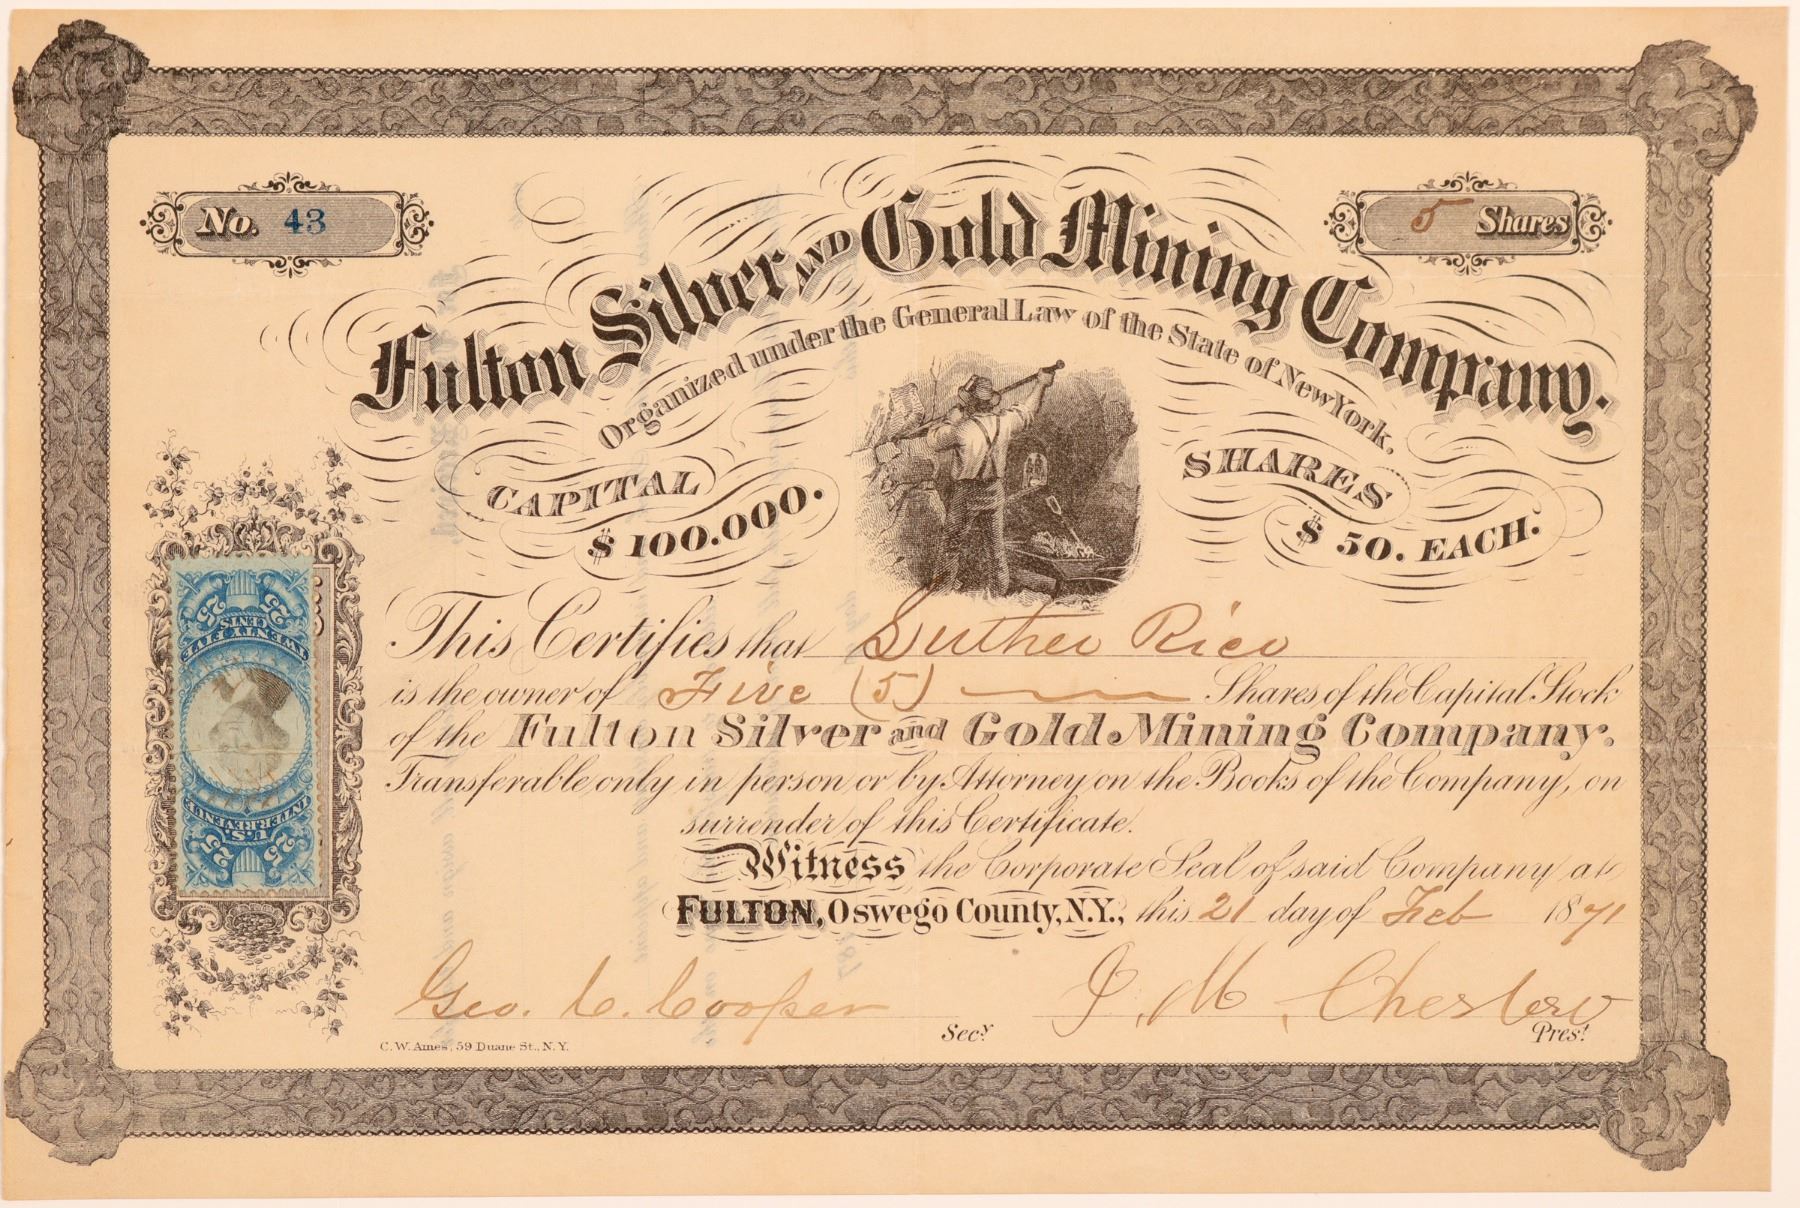 No. 43
5 Shares
Fulton Silver AND Gold Mining Company.
Organized under the General Law of the State of New York.
CAPITAL
$100.000.
SHARES
$50. EACH.
This Certifies that Luther Rice
is the owner of Five (5) Shares of the Capital Stock
of the Fulton Silver and Gold Mining Company.
Transferable only in person or by Attorney on the Books of the Company, on
surrender of this Certificate.
Witness the Corporate Seal of said Company at
FULTON, Oswego County, N.Y., this 21 day of Feb 1871
Geo. C. Cooper Secy.
J. M. Chester Prest.
C. W. Ames, 59 Duane St., N. Y.
25 25
TWENTY FIVE
CENTS
U.S.
INTER. REVENUE
25 25